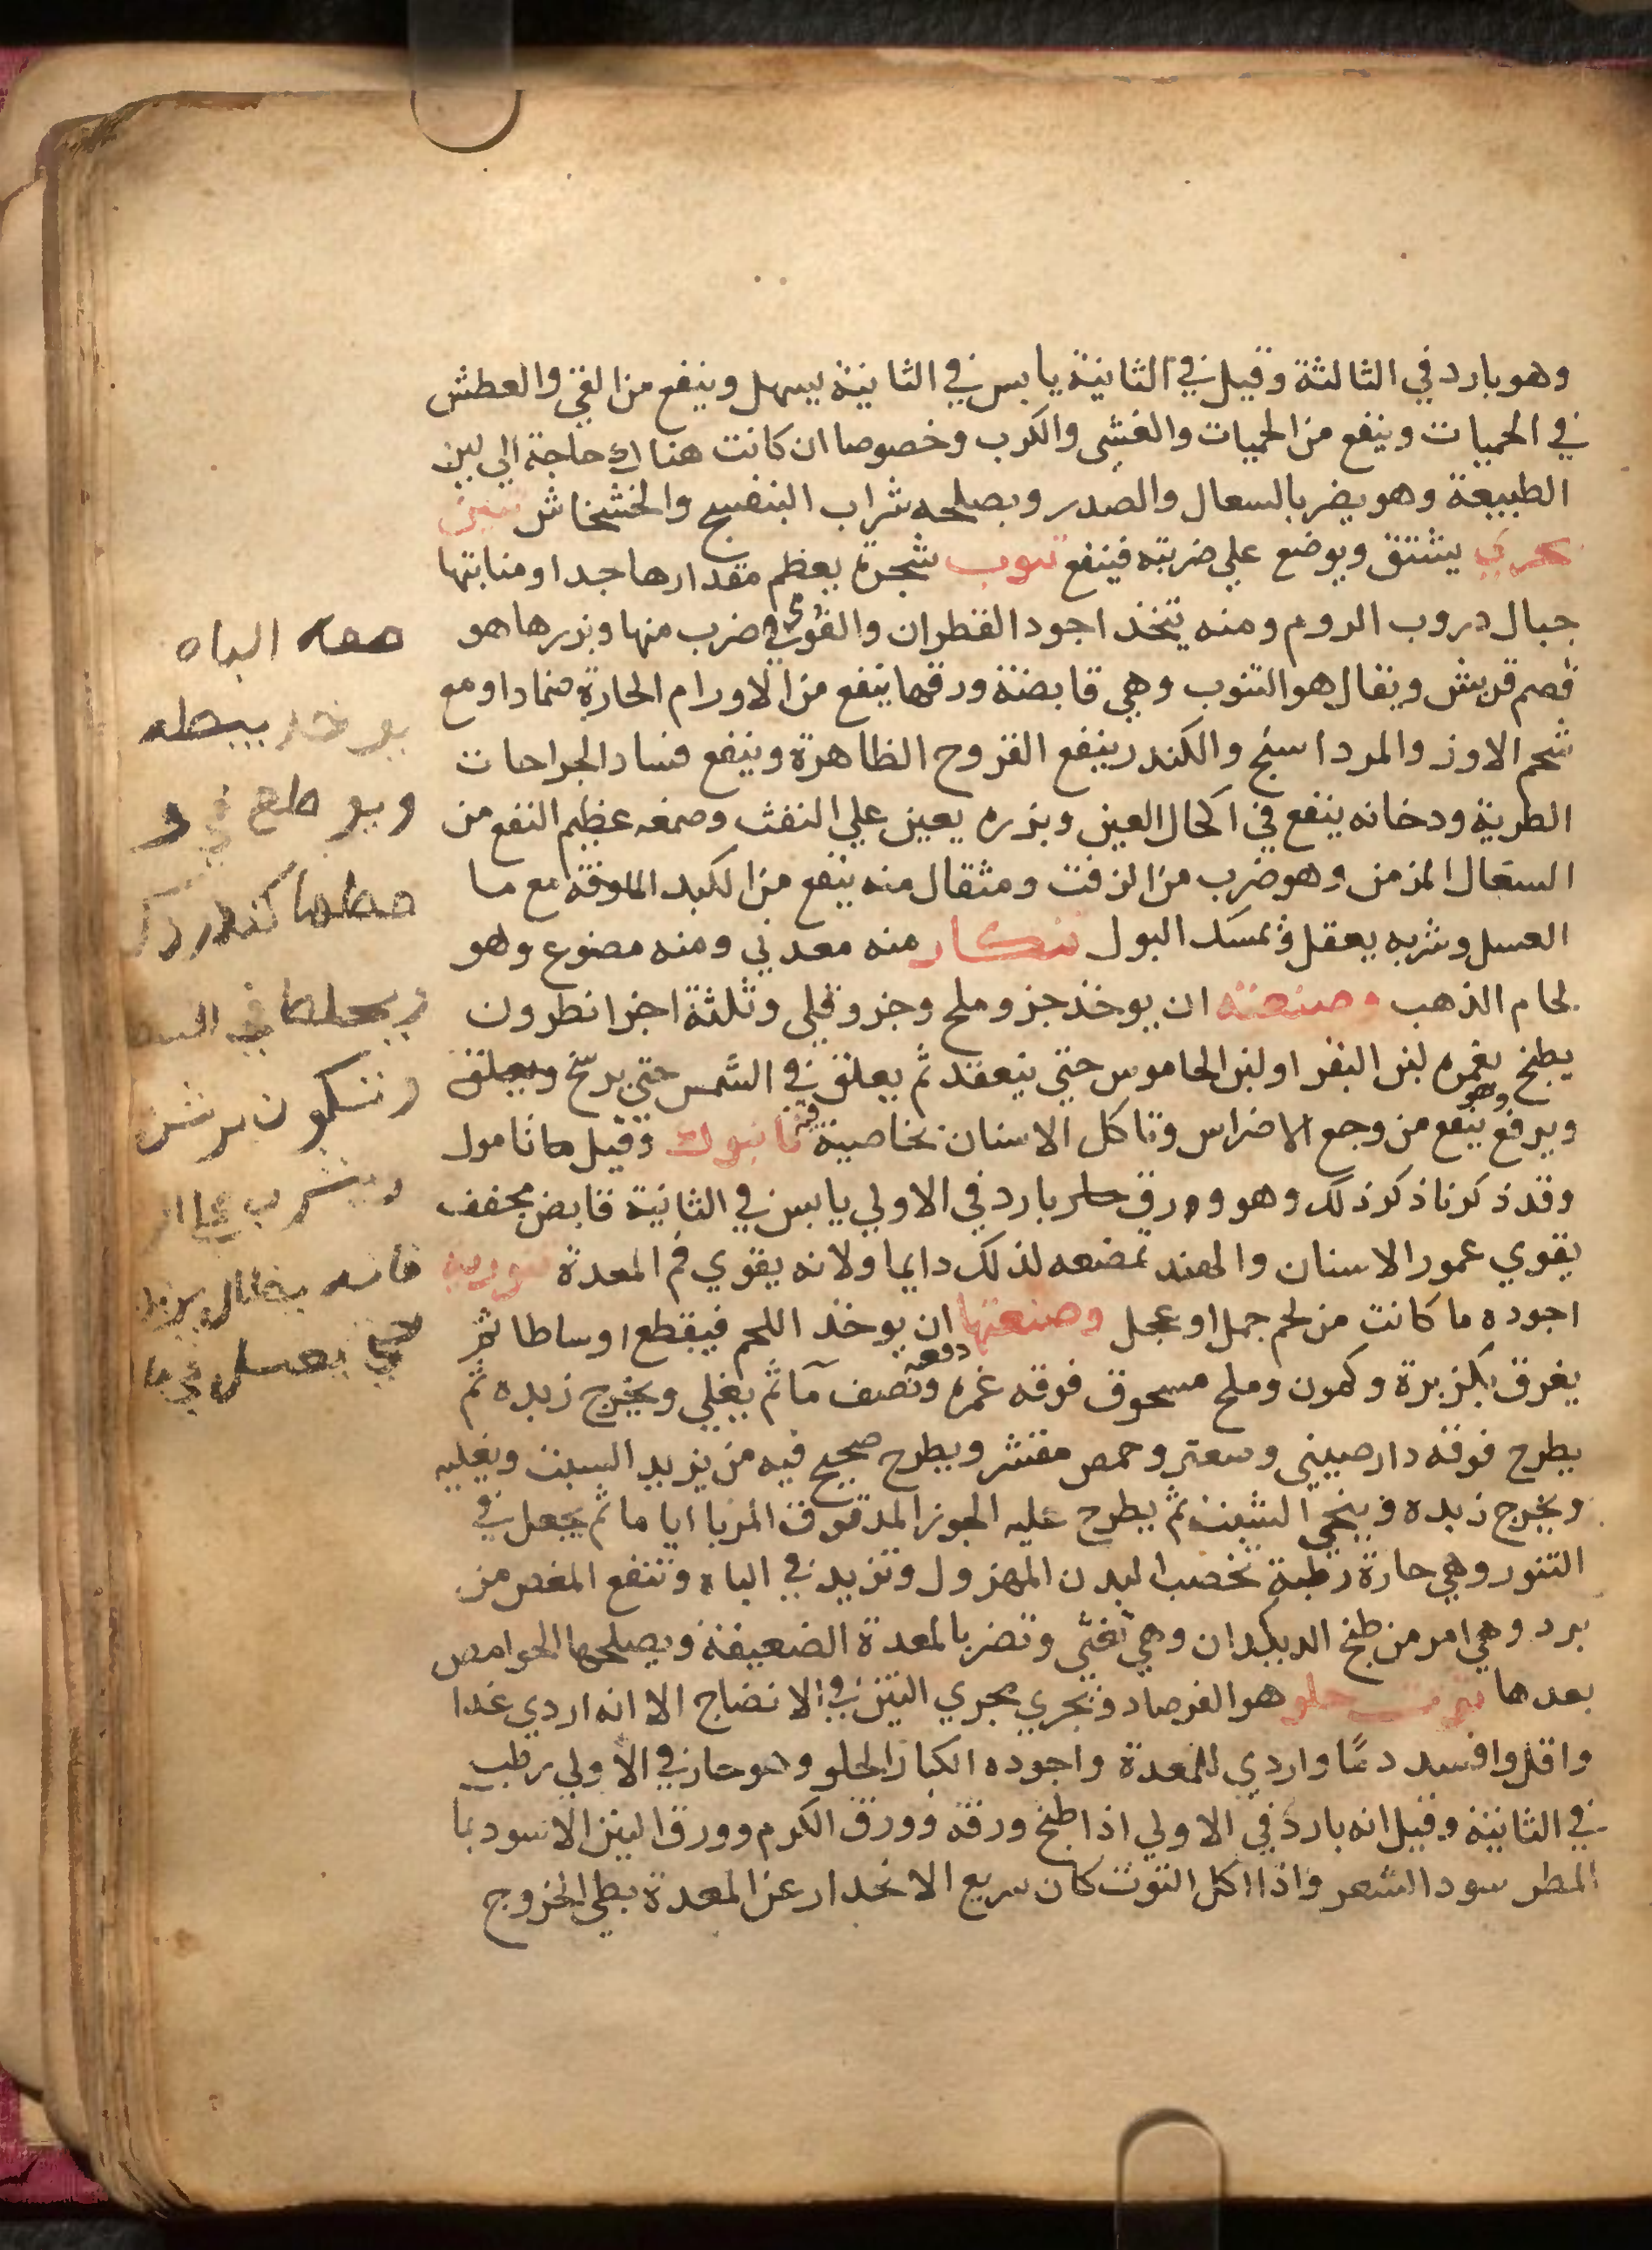 وهو بارد في الثالثة وقيل في الثانية يابس في الثانية يسهل وينفع من القي والعطش
في الحميات وينفع من الحميات والغشى والكرب وخصوصا ان كانت هناك حاجة الي لين
الطبيعة وهو يضر بالسعال والصدر ويصلحه شراب البنفسج والخشخاش تنين
بحري يشتق ويوضع علي ضربته فينفع تنوب شجرة يعظم مقدارها جدا ومنابتها
جبال دروب الروم ومنه يتخذ اجود القطران والقوفي ضرب منها وبزرها هو
قضم قريش ويقال هو التنوب وهي قابضة ورقها ينفع من الاورام الحارة ضمادا ومع
شحم الاوز والمرداسنج والكندر ينفع القروح الظاهرة وينفع فساد الجراحات
الطرية ودخانه ينفع في اكحال العين وبزره يعين علي النفث وصمغه عظيم النفع من
السعال المزمن وهو ضرب من الزفت ومثقال منه ينفع من الكبد الماوفة مع ما
العسل وشربه يعقل ويمسك البول تنكار منه معدني ومنه مصنوع وهو
لحام الذهب وصنعته ان يوخذ جزو ملح وجزو قلي وثلثة اجزا نطرون
يطبخ بغمره لبن البقر او لبن الجاموس حتي ينعقد ثم يعلق في الشمس حتي يرشح ويعلق
ويرفع وهو ينفع من وجع الاضراس وتاكل الاسنان بخاصية فيه تانبوك وقيل ها تامول
وقد ذكرنا ذكر ذلك وهو وورق حار بارد في الاولي يابس في الثانية قابض مجفف
يقوي عمور الاسنان والهند تمضغه لذلك دايما ولانه يقوي فم المعدة
اجوده ما كانت من لحم جمل او عجل وصنعتها ان يوخذ اللحم فيقطع اوساطا ثم
يغرق بكزبرة وكمون وملح مسحوق فوقه غمره ونصف دفعة مآ ثم يغلي ويخرج زبده ثم
يطرح فوقه دارصيني وسعتر وحمص مقشر ويطرح صحيح فيه من يزيد الشبت ويغليه
ويخرج زبده وينحي الشبت ثم يطرح عليه الجوز المدقوق المربا اياما ثم يجعل في
التنور وهي حارة رطبة تخصب البدن المهزول وتزيد في الباه وتنفع المغص من
برد وهي امر من طبخ الديكدان وهي تغثي وتضر بالمعدة الضعيفة ويصلحها الحوامص
بعدها توت حلو هو الفرصاد ويجري مجري التين في الانضاج الا انه اردي غذا
واقل وافسد دمًا واردي للمعدة واجوده الكبار الحلو وهو حار في الاولي رطب
في الثانية وقيل انه بارد في الاولي اذا طبخ ورقه وورق الكرم وورق التين الاسود بما
المطر سود الشعر واذا اكل التوث كان سريع الانحدار عن المعدة بطي الخروج
معه الباه
يوخد
في
كندر
في
وتكون
ويشرب
فانه
حتي